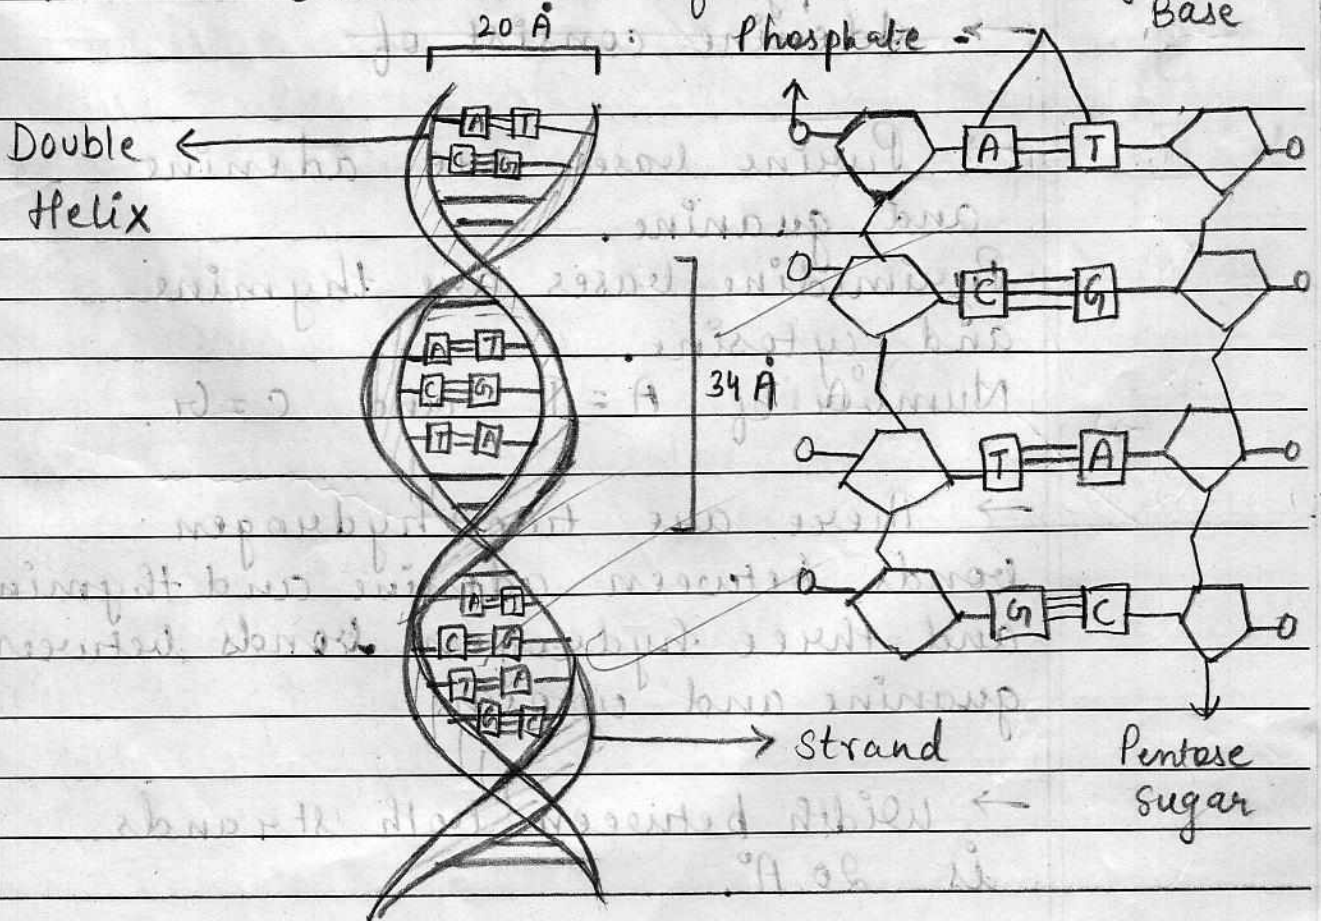 20 Å
Phosphate
Base
Double
Helix
A T
C G
A T
C G
T A
A T
C G
T A
G C
34 Å
O A T O
O C G O
O T A O
O G C O
Strand
Pentose
Sugar